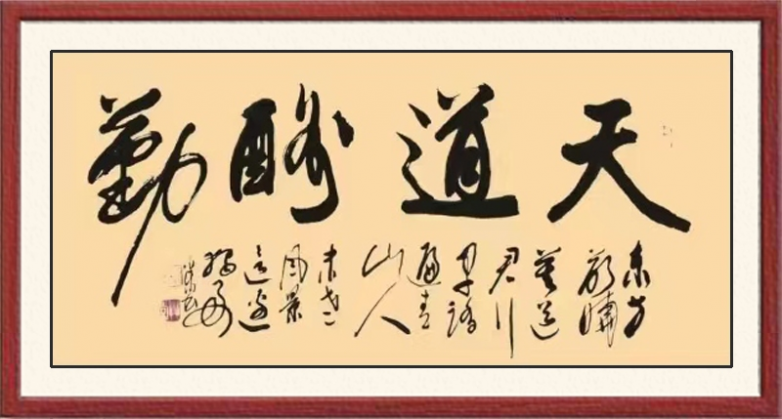 天道酬勤
东方
欲晓
莫道
君行
早踏
遍青
山人
未老
风景
这边
独好